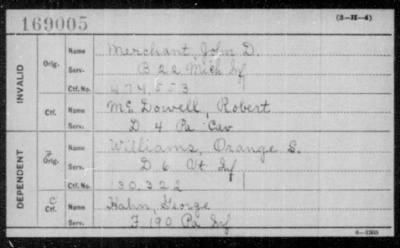 169005 (3-II-4)
INVALID
Orig. Name Merchant, John D.
Serv. B 22 Mich Inf
Ctf. No. 474,553
Ctf. Name Mc Dowell, Robert
Serv. D 4 Pa Cav
DEPENDENT
Orig. Name Williams, Orange S.
Serv. D 6 Vt Inf
Ctf. No. 130,322
Ctf. Name Hahn, George
Serv. F 190 Pa Inf